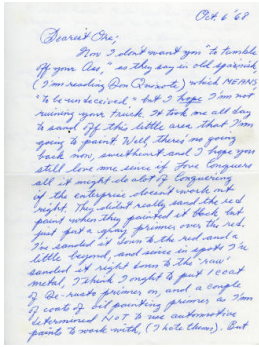 Oct. 6 '68
Dearest One;
Now I don't want you "to tumble
off your Ass," as they say in old Spanish
(I'm reading Don Quixote) which MEANS
"to be undeceived" but I hope I'm not
ruining your truck. It took me all day
to sand off this little area that I'm
going to paint. Well, there's no going
back now, sweetheart and I hope you
still love me since if Love Conquers
all it might do alot of Conquering
if the enterprise doesn't work out
right. They didn't really sand the red
paint when they painted it black but
just put a gray primer over the red.
I've sanded it down to the red and a
little beyond, and since in spots I've
sanded it right down to the 'raw'
metal, I think I ought to put 1 coat
of De-rusto primer on, and a couple
of coats of oil painting primer as I'm
determined NOT to use automotive
paints to work with, (I hate them). But